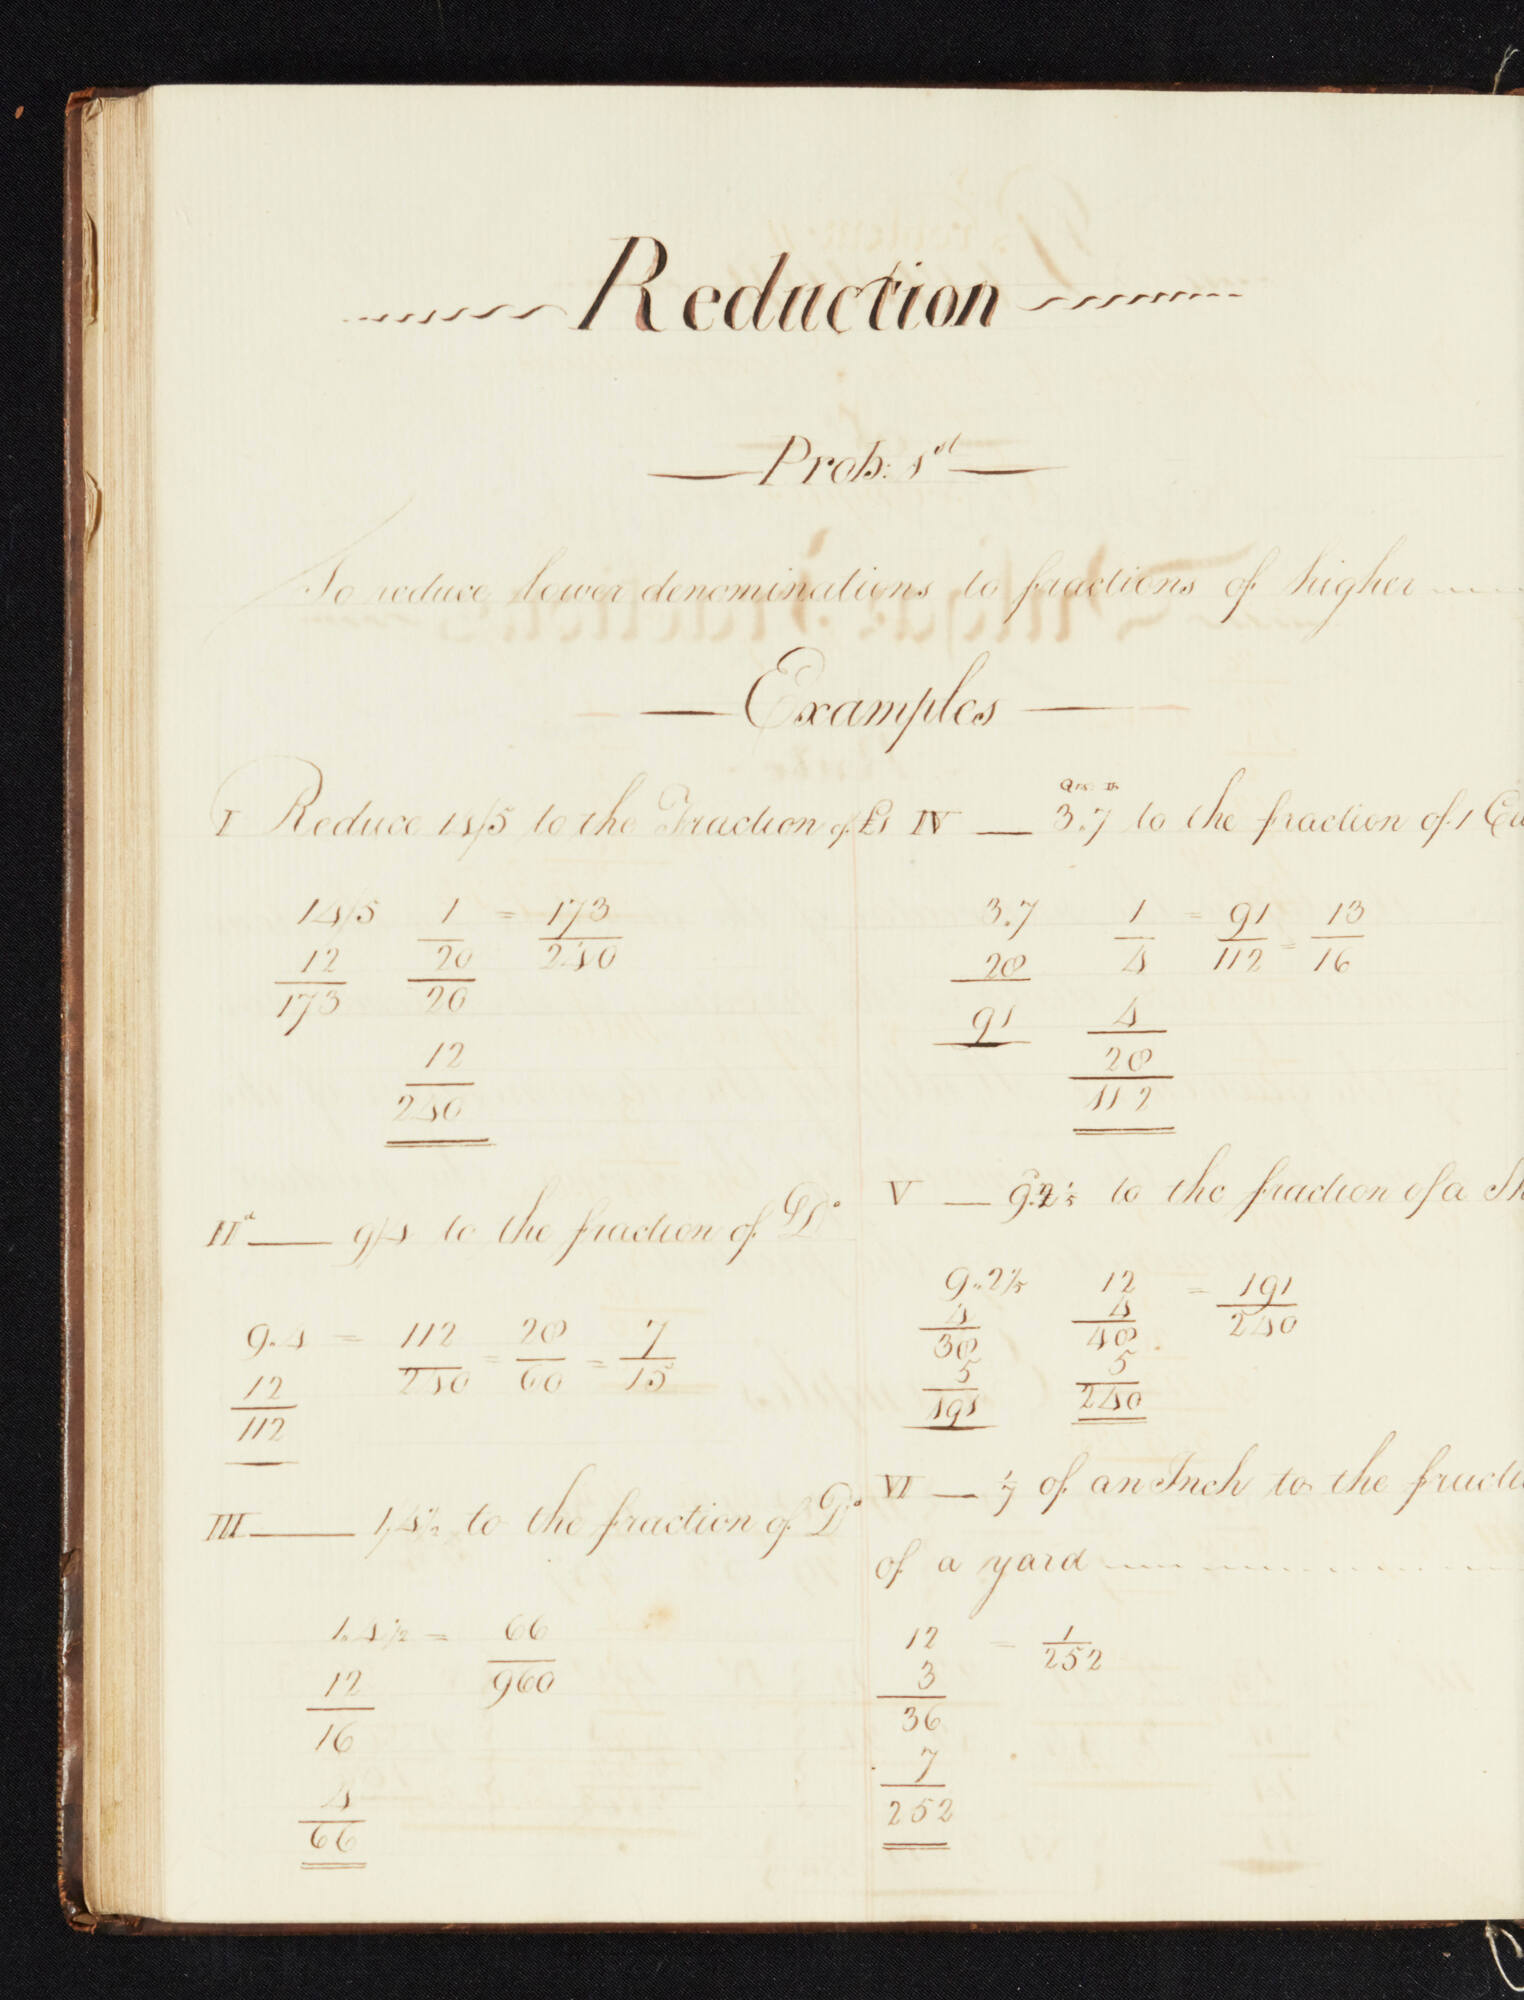 Reduction
Prob: 1st
To reduce lower denominations to fractions of higher
Examples
I Reduce 14/5 to the Fraction of £1
14/5 1 = 173
12 20 240
173 20
12
240
IId 9/4 to the fraction of Do
9.4 = 112 = 28 = 7
240 60 15
12
112
III 1,4½ to the fraction of Do
1.4½ = 66
960
12
16
4
66
Qrs. lb
IV 3.7 to the fraction of 1
3.7 1 = 91 = 13
28 4 112 16
91 4
28
112
V 9.2⅕ to the fraction of a
9..2⅕ 12 = 191
4 4 240
38 48
5 5
191 240
VI 1/7 of an Inch to the
of a yard
12 = 1
3 252
36
7
252